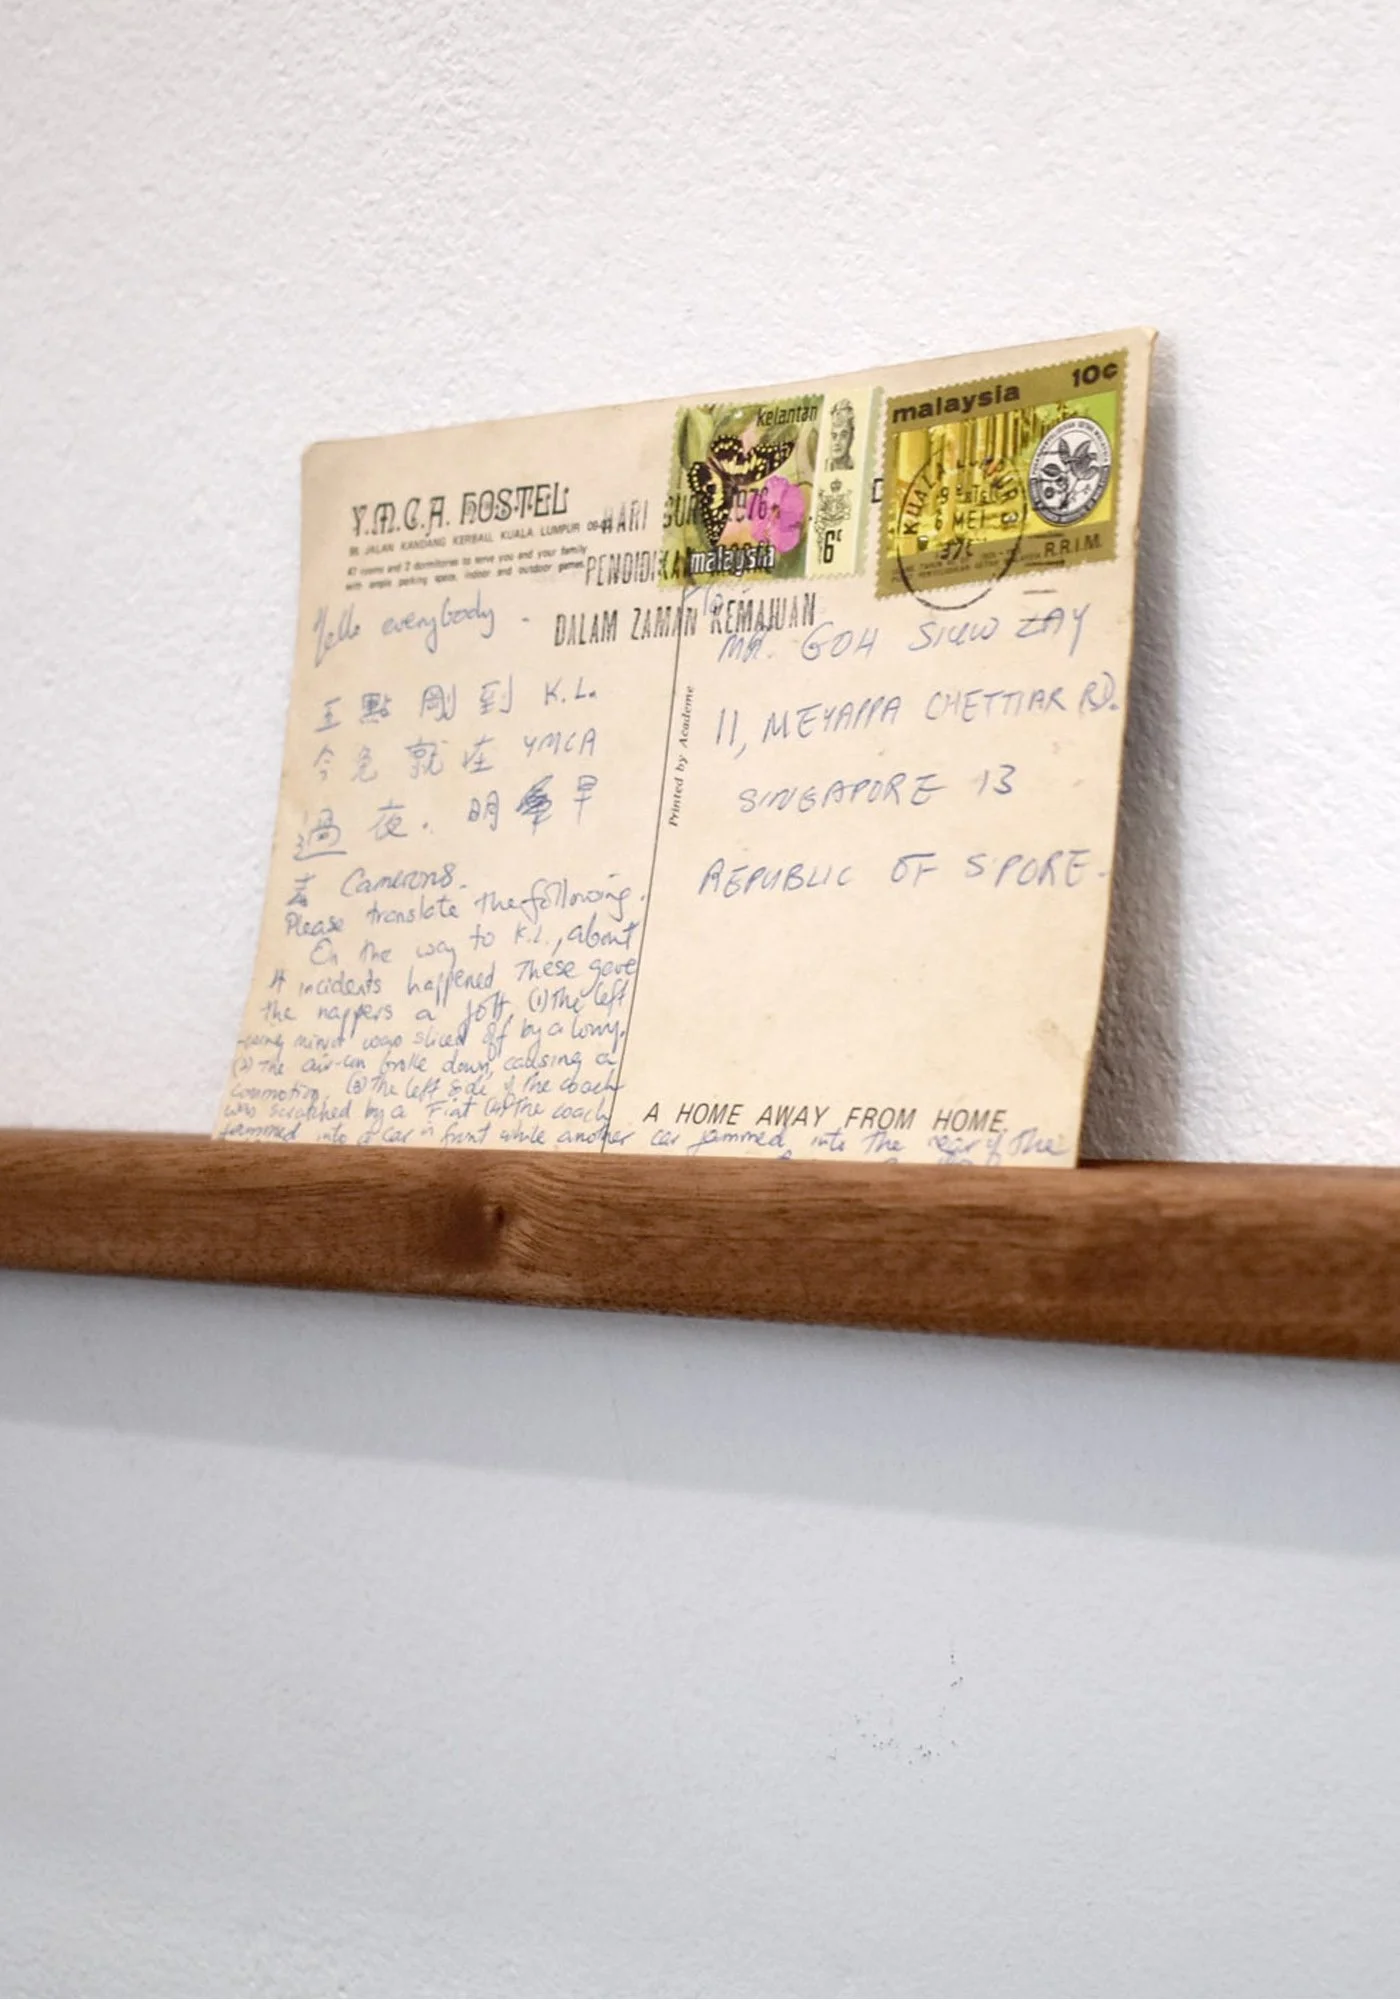 Y.M.C.A. HOSTEL
JALAN KANDANG KERBAU, KUALA LUMPUR
47 rooms and 2 dormitories to serve you and your family
with ample parking space, indoor and outdoor games.
Hello everybody -
五點剛到 K.L.
今免就在 YMCA
過夜. 明早
去 Camerons.
Please translate the following.
On the way to K.L., about
4 incidents happened These gave
the nappers a jolt. (1) The left
mirror was sliced off by a lorry.
(2) The air-con broke down, causing a
commotion. (3) The left side of the coach
was scratched by a Fiat (4) The coach
jammed into a car in front while another car jammed into the rear of the
Printed by Academe
kelantan
malaysia
6c
malaysia
10c
R.R.I.M.
KUALA LUMPUR
6 MEI
HARI GURU 1976
PENDIDIKAN
DALAM ZAMAN KEMAJUAN
To:
MR. GOH SIEW ZAY
11, MEYAPPA CHETTIAR RD.
SINGAPORE 13
REPUBLIC OF S'PORE.
A HOME AWAY FROM HOME.